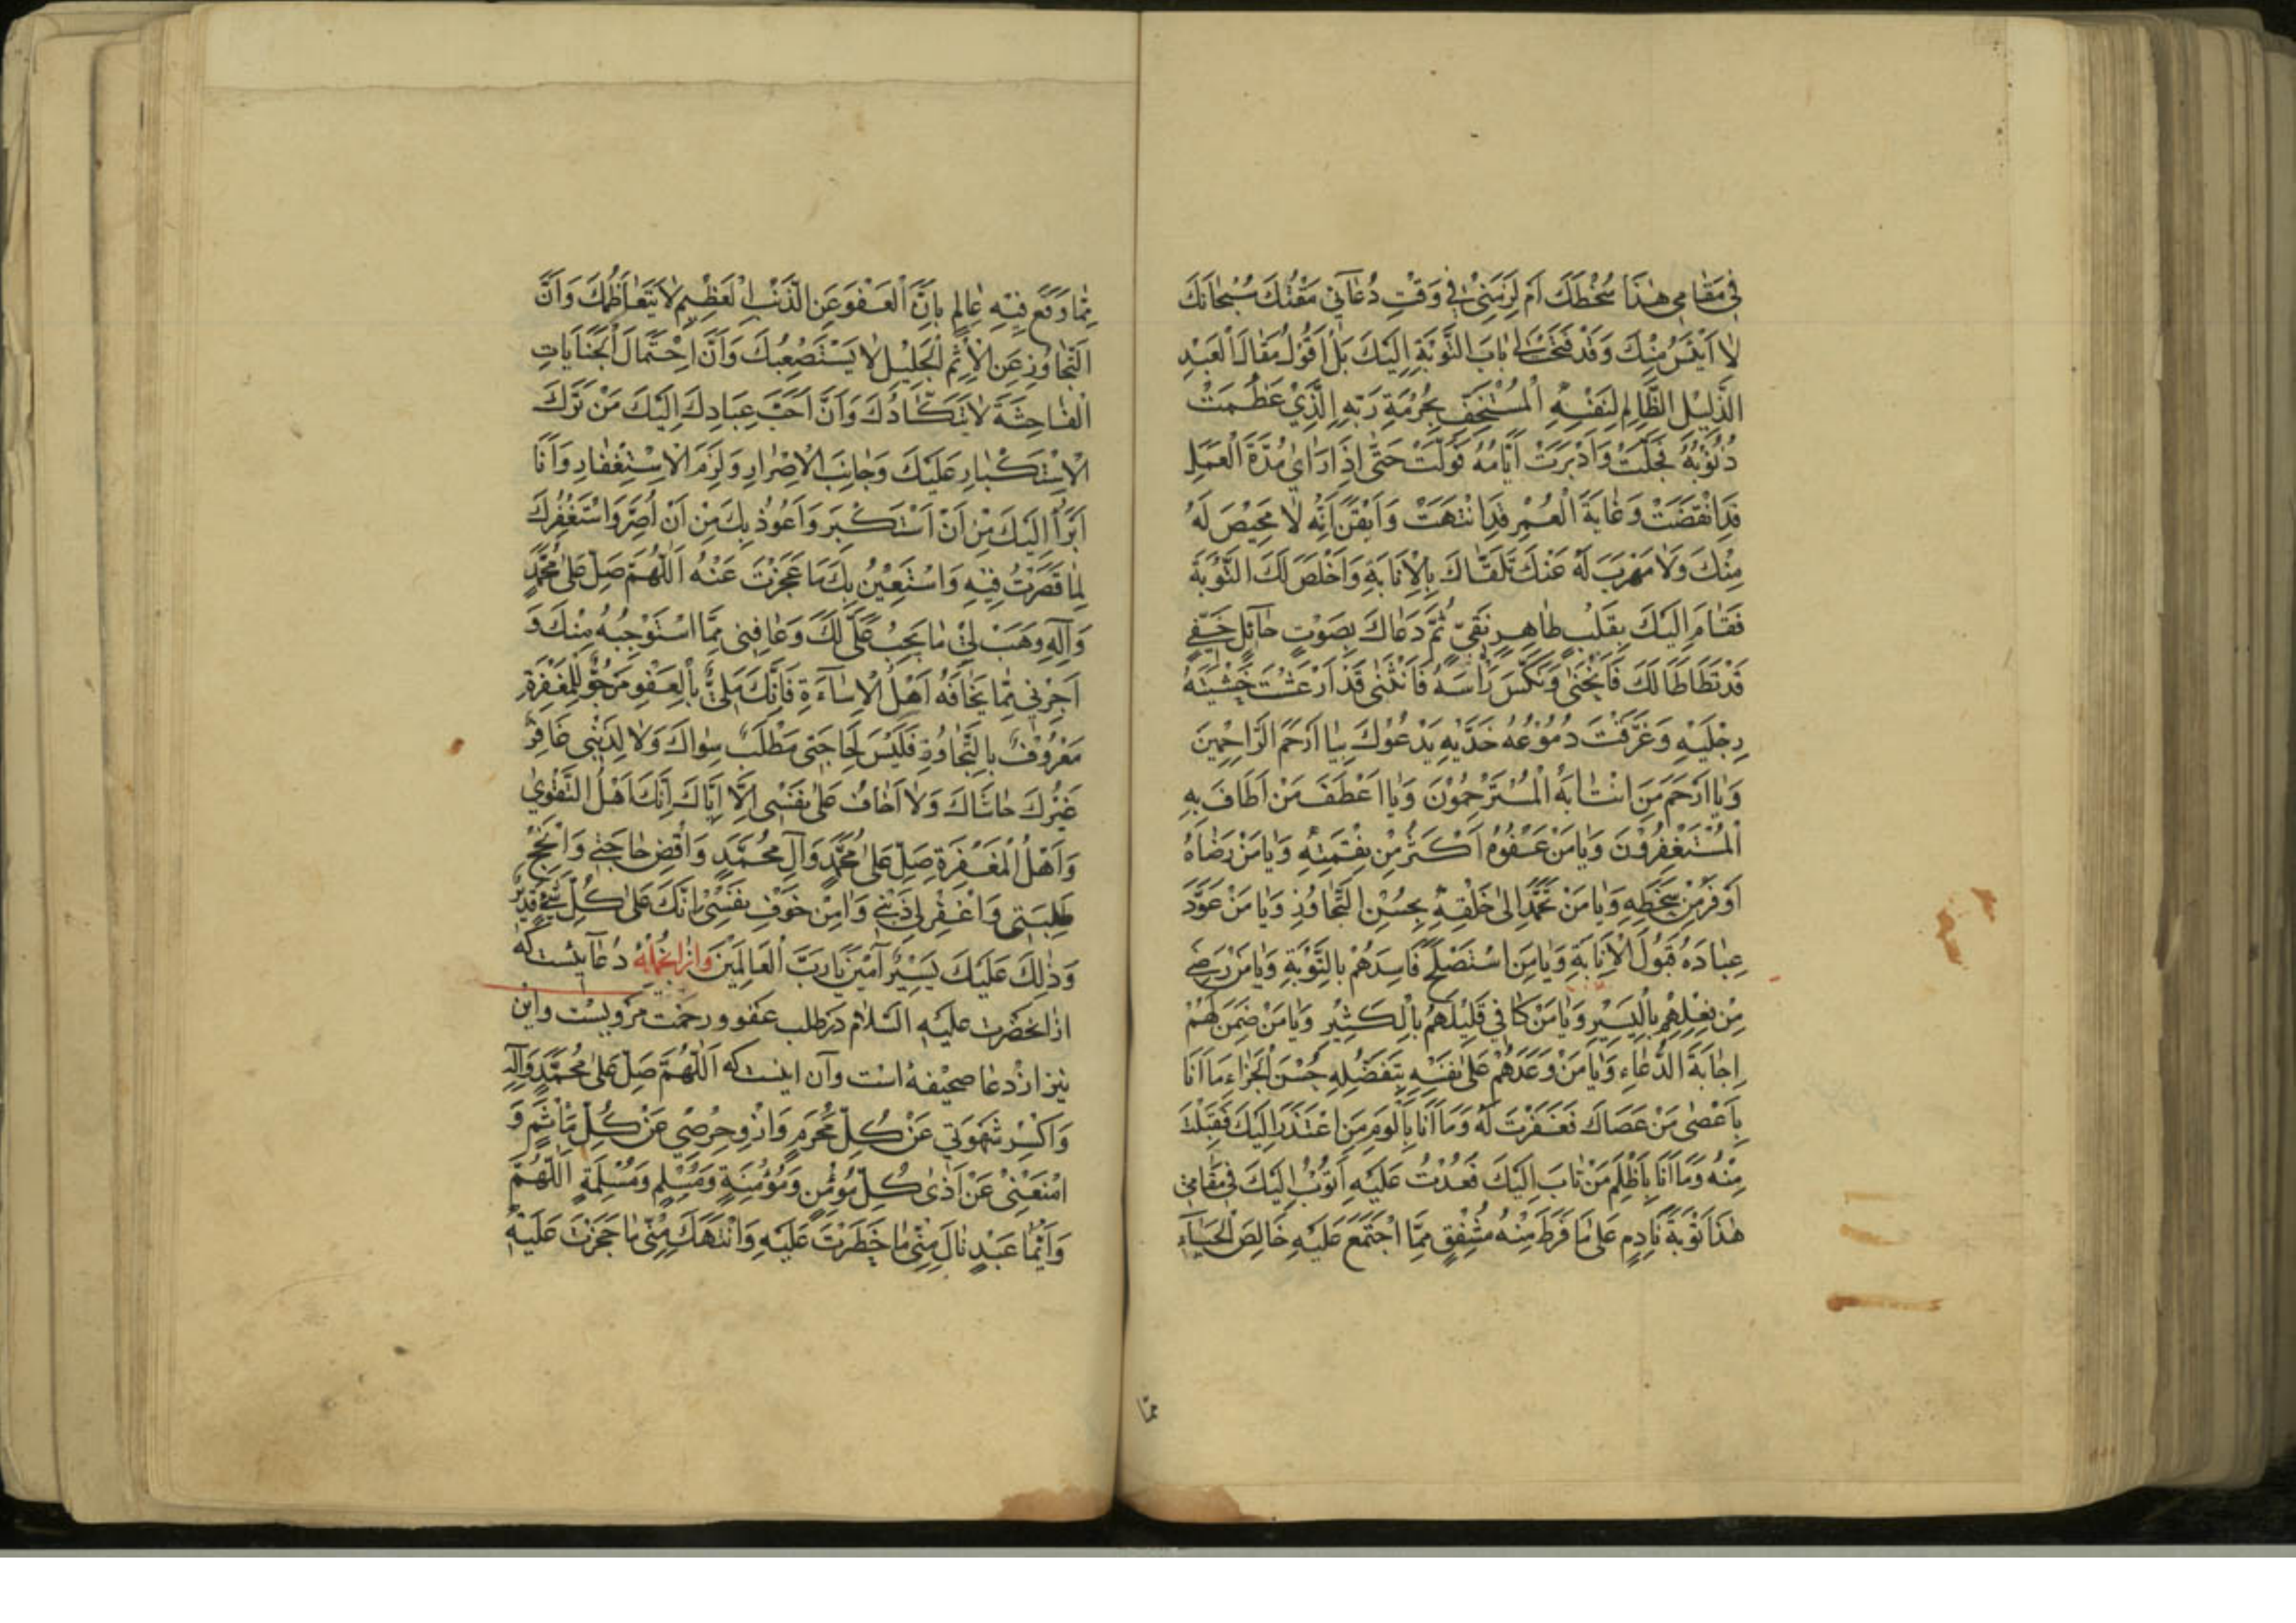 فِي مَقَامِي هٰذَا سُخْطَكَ اَمْ لَزِمَنِي فِي وَقْتِ دُعَآئِي مَقْتُكَ سُبْحَانَكَ
لَا اَيْئَسُ مِنْكَ وَقَدْ فَتَحْتَ لِي بَابَ التَّوْبَةِ اِلَيْكَ بَلْ اَقُولُ مَقَالَ الْعَبْدِ
الذَّلِيْلِ الظَّالِمِ لِنَفْسِهِ الْمُسْتَخِفِّ بِحُرْمَةِ رَبِّهِ الَّذِيْ عَظُمَتْ
ذُنُوْبُهُ فَجَلَّتْ وَاَدْبَرَتْ اَيَّامُهُ فَوَلَّتْ حَتّٰى اِذَا رَاٰى مُدَّةَ الْعَمَلِ
قَدِ انْقَضَتْ وَغَايَةَ الْعُمْرِ قَدِ انْتَهَتْ وَاَيْقَنَ اَنَّهُ لَا مَحِيْصَ لَهُ
مِنْكَ وَلَا مَهْرَبَ لَهُ عَنْكَ تَلَقَّاكَ بِالْاِنَابَةِ وَاَخْلَصَ لَكَ التَّوْبَةَ
فَقَامَ اِلَيْكَ بِقَلْبٍ طَاهِرٍ نَقِيٍّ ثُمَّ دَعَاكَ بِصَوْتٍ حَآئِلٍ خَفِيٍّ
قَدْ تَطَاْطَاَ لَكَ فَانْحَنٰى وَنَكَّسَ رَاْسَهُ فَانْثَنٰى قَدْ اَرْعَشَتْ خَشْيَتُهُ
رِجْلَيْهِ وَغَرَّقَتْ دُمُوْعُهُ خَدَّيْهِ يَدْعُوْكَ بِيَا اَرْحَمَ الرَّاحِمِيْنَ
وَيَا اَرْحَمَ مَنِ انْتَابَهُ الْمُسْتَرْحِمُوْنَ وَيَا اَعْطَفَ مَنْ اَطَافَ بِهِ
الْمُسْتَغْفِرُوْنَ وَيَا مَنْ عَفْوُهُ اَكْثَرُ مِنْ نِقْمَتِهِ وَيَا مَنْ رِضَاهُ
اَوْفَرُ مِنْ سَخَطِهِ وَيَا مَنْ تَحَمَّدَ اِلٰى خَلْقِهِ بِحُسْنِ التَّجَاوُزِ وَيَا مَنْ عَوَّدَ
عِبَادَهُ قَبُوْلَ الْاِنَابَةِ وَيَا مَنِ اسْتَصْلَحَ فَاسِدَهُمْ بِالتَّوْبَةِ وَيَا مَنْ رَضِيَ
مِنْ فِعْلِهِمْ بِالْيَسِيْرِ وَيَا مَنْ كَافٰى قَلِيْلَهُمْ بِالْكَثِيْرِ وَيَا مَنْ ضَمِنَ لَهُمْ
اِجَابَةَ الدُّعَاءِ وَيَا مَنْ وَعَدَهُمْ عَلٰى نَفْسِهِ بِتَفَضُّلِهِ حُسْنَ الْجَزَاءِ مَا اَنَا
بِاَعْصٰى مَنْ عَصَاكَ فَغَفَرْتَ لَهُ وَمَا اَنَا بِاَلْوَمِ مَنِ اعْتَذَرَ اِلَيْكَ فَقَبِلْتَ
مِنْهُ وَمَا اَنَا بِاَظْلَمِ مَنْ تَابَ اِلَيْكَ فَعُدْتَ عَلَيْهِ اَتُوْبُ اِلَيْكَ فِي مَقَامِي
هٰذَا تَوْبَةَ نَادِمٍ عَلٰى مَا فَرَطَ مِنْهُ مُشْفِقٍ مِمَّا اجْتَمَعَ عَلَيْهِ خَالِصِ الْحَيَاءِ
مِمَّا
مِمَّا وَقَعَ فِيْهِ عَالِمٍ بِاَنَّ الْعَفْوَ عَنِ الذَّنْبِ الْعَظِيْمِ لَا يَتَعَاظَمُكَ وَاَنَّ
التَّجَاوُزَ عَنِ الْاِثْمِ الْجَلِيْلِ لَا يَسْتَصْعِبُكَ وَاَنَّ احْتِمَالَ الْجِنَايَاتِ
الْفَاحِشَةِ لَا يَتَكَاَّدُكَ وَاَنَّ اَحَبَّ عِبَادِكَ اِلَيْكَ مَنْ تَرَكَ
الْاِسْتِكْبَارَ عَلَيْكَ وَجَانَبَ الْاِصْرَارَ وَلَزِمَ الْاِسْتِغْفَارَ وَاَنَا
اَبْرَاُ اِلَيْكَ مِنْ اَنْ اَسْتَكْبِرَ وَاَعُوْذُ بِكَ مِنْ اَنْ اُصِرَّ وَاَسْتَغْفِرُكَ
لِمَا قَصَّرْتُ فِيْهِ وَاَسْتَعِيْنُ بِكَ مَا عَجَزْتُ عَنْهُ اَللّٰهُمَّ صَلِّ عَلٰى مُحَمَّدٍ
وَآلِهِ وَهَبْ لِيْ مَا يَجِبُ عَلَيَّ لَكَ وَعَافِنِي مِمَّا اسْتَوْجِبُهُ مِنْكَ وَ
اَجِرْنِي مِمَّا يَخَافُهُ اَهْلُ الْاِسَآءَةِ فَاِنَّكَ مَلِيٌّ بِالْعَفْوِ مَرْجُوٌّ لِلْمَغْفِرَةِ
مَعْرُوْفٌ بِالتَّجَاوُزِ فَلَيْسَ لِحَاجَتِي مَطْلَبٌ سِوَاكَ وَلَا لِذَنْبِي غَافِرٌ
غَيْرُكَ حَاشَاكَ وَلَا اَخَافُ عَلٰى نَفْسِي اِلَّا اِيَّاكَ اِنَّكَ اَهْلُ التَّقْوٰى
وَاَهْلُ الْمَغْفِرَةِ صَلِّ عَلٰى مُحَمَّدٍ وَآلِ مُحَمَّدٍ وَاقْضِ حَاجَتِي وَاَنْجِحْ
طَلِبَتِي وَاغْفِرْ لِي ذَنْبِي وَآمِنْ خَوْفَ نَفْسِي اِنَّكَ عَلٰى كُلِّ شَيْءٍ قَدِيْرٌ
وَذٰلِكَ عَلَيْكَ يَسِيْرٌ آمِيْنَ يَا رَبَّ الْعَالَمِيْنَ وازانجمله دعائيست كه
ازانحضرت عليه السلام در طلب عفو و رحمت مرويست واين
نيز از دعا صحيفه است وآن اينست كه اَللّٰهُمَّ صَلِّ عَلٰى مُحَمَّدٍ وَآلِهِ
وَاكْسِرْ شَهْوَتِي عَنْ كُلِّ مَحْرَمٍ وَازْوِ حِرْصِي عَنْ كُلِّ مَاْثَمٍ وَ
امْنَعْنِيْ عَنْ اَذٰى كُلِّ مُؤْمِنٍ وَمُؤْمِنَةٍ وَمُسْلِمٍ وَمُسْلِمَةٍ اَللّٰهُمَّ
وَاَيُّمَا عَبْدٍ نَالَ مِنِّي مَا حَظَرْتَ عَلَيْهِ وَانْتَهَكَ مِنِّي مَا حَجَرْتَ عَلَيْهِ